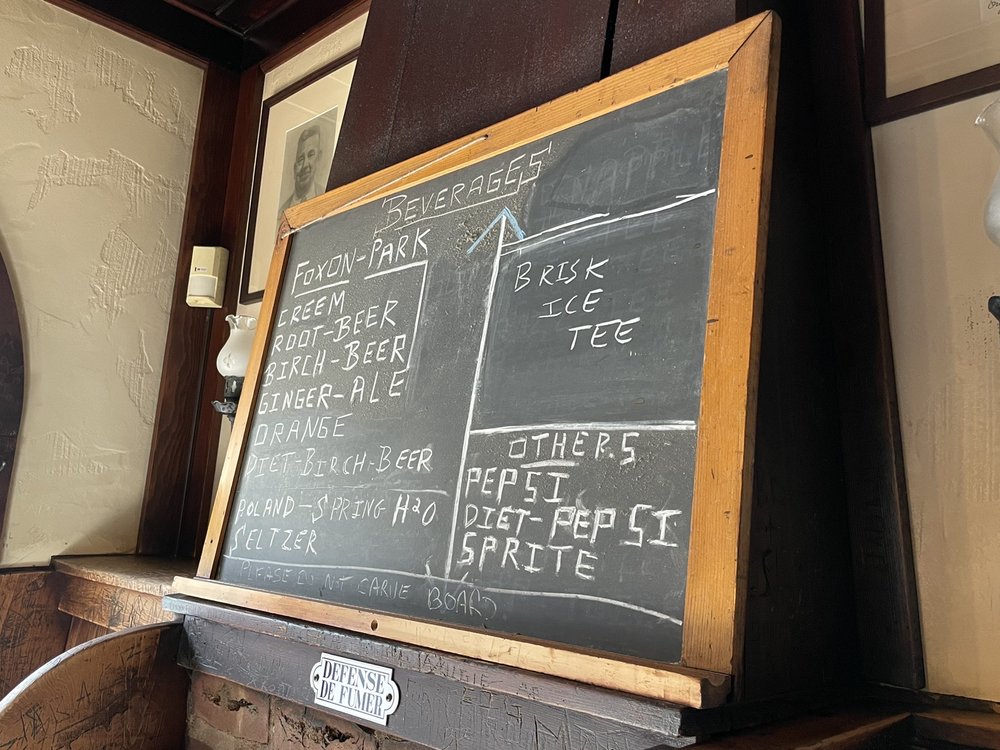 BEVERAGES
FOXON-PARK
CREEM
ROOT-BEER
BIRCH-BEER
GINGER-ALE
ORANGE
DIET-BIRCH-BEER
POLAND-SPRING H2O
SELTZER
SNAPPLE
BRISK
ICE
TEE
OTHERS
PEPSI
DIET-PEPSI
SPRITE
PLEASE DO NOT CARVE BOARD
DEFENSE
DE FUMER